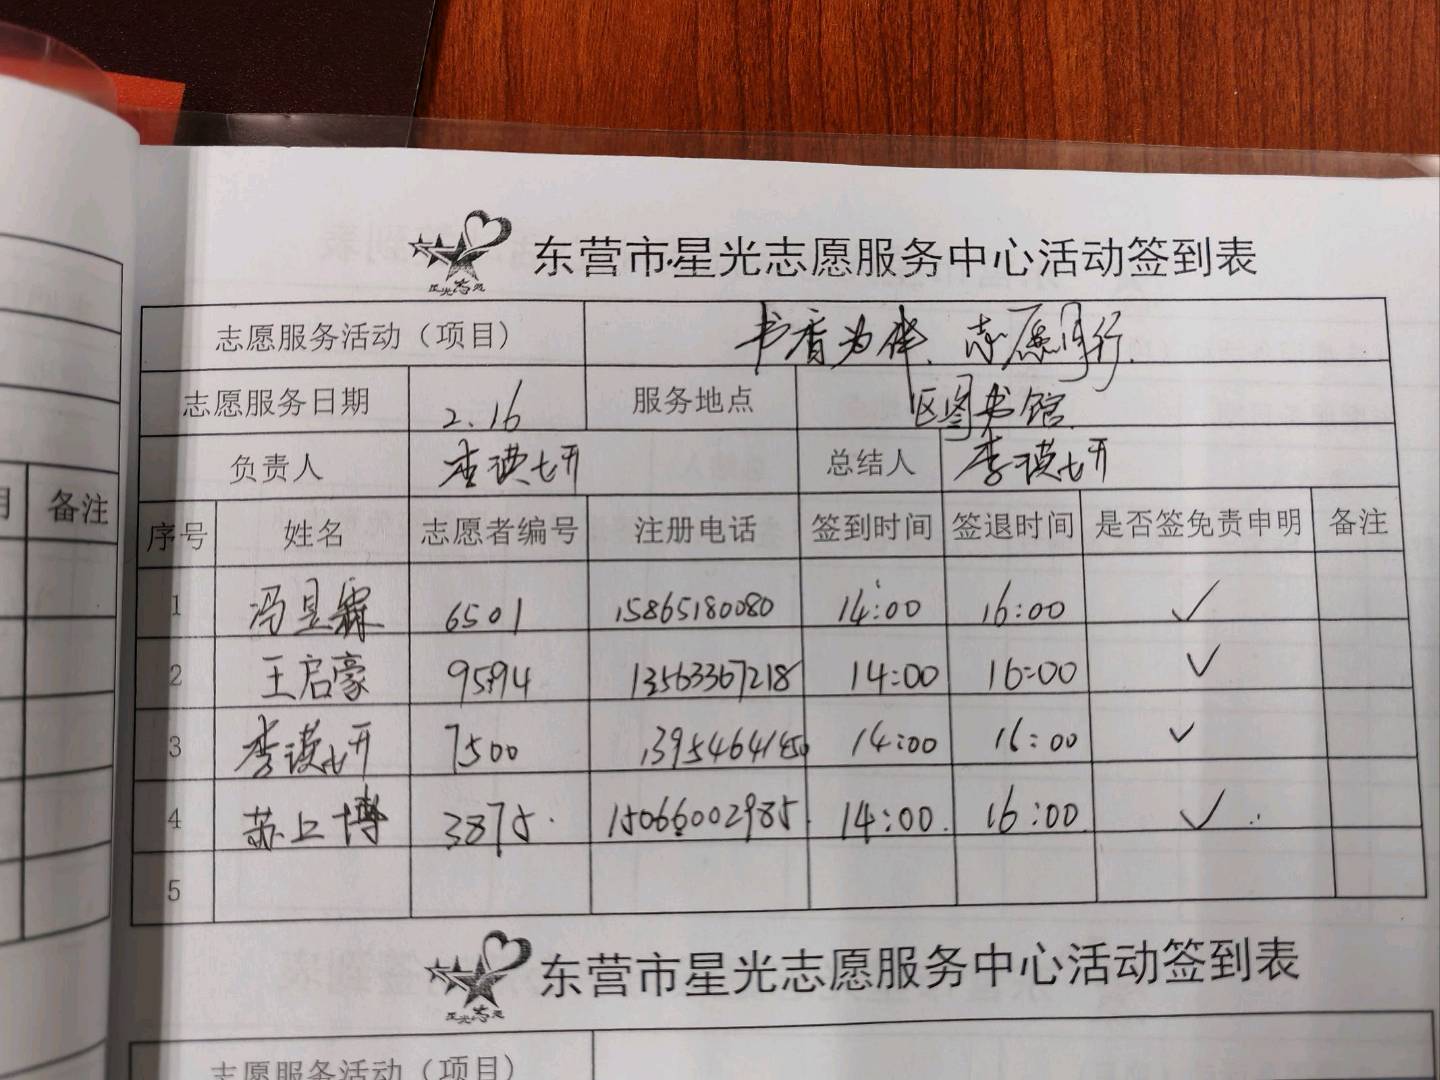 星光志愿
东营市星光志愿服务中心活动签到表
志愿服务活动（项目） 书香为伴、志愿同行
志愿服务日期 2.16 服务地点 区图书馆
负责人 李瑛妍 总结人 李瑛妍
序号 姓名 志愿者编号 注册电话 签到时间 签退时间 是否签免责申明 备注
1 冯昱霖 6501 15865180080 14:00 16:00 ✓
2 王启豪 9594 13563367218 14:00 16:00 ✓
3 李瑛妍 7500 13954641450 14:00 16:00 ✓
4 苏上博 3875 15066002985 14:00 16:00 ✓
5
星光志愿
东营市星光志愿服务中心活动签到表
志愿服务活动（项目）
备注